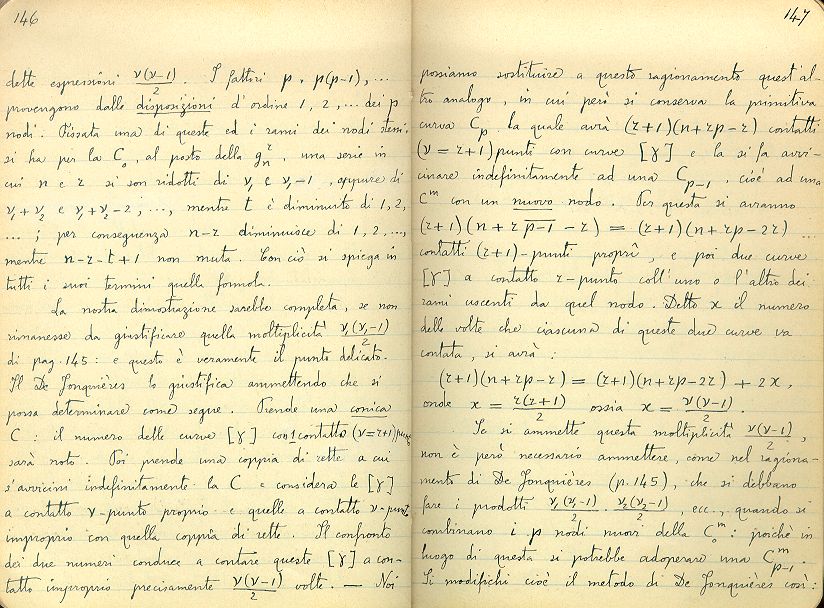 146
dette espressioni ν(ν-1)/2. I fattori p, p(p-1), ...
provengono dalle disposizioni d'ordine 1, 2, ... dei p
nodi. Fissata una di queste ed i rami dei nodi stessi,
si ha per la C₀, al posto della gₙʳ, una serie in
cui n e r si son ridotti di ν₁ e ν₁-1, oppure di
ν₁+ν₂ e ν₁+ν₂-2; ..., mentre t è diminuito di 1, 2,
...; per conseguenza n-r diminuisce di 1, 2, ...,
mentre n-r-t+1 non muta. Con ciò si spiega in
tutti i suoi termini quella formola.
La nostra dimostrazione sarebbe completa, se non
rimanesse da giustificare quella moltiplicità ν₁(ν₁-1)/2
di pag. 145: e questo è veramente il punto delicato.
Il De Jonquières lo giustifica ammettendo che si
possa determinare come segue. Prende una conica
C: il numero delle curve [γ] con 1 contatto (ν=r+1)punto
sarà noto. Poi prende una coppia di rette a cui
s'avvicini indefinitamente la C e considera le [γ]
a contatto ν-punto proprio e quelle a contatto ν-punto
improprio con quella coppia di rette. Il confronto
dei due numeri conduce a contare queste [γ] a con-
tatto improprio precisamente ν(ν-1)/2 volte. — Noi
147
possiamo sostituire a questo ragionamento quest'al-
tro analogo, in cui però si conserva la primitiva
curva Cₚ la quale avrà (r+1)(n+rp-r) contatti
(ν=r+1)punti con curve [γ] e la si fa avvi-
cinare indefinitamente ad una Cₚ₋₁, cioè ad una
Cᵐ con un nuovo nodo. Per questa si avranno
(r+1)(n+r p-1 -r) = (r+1)(n+rp-2r)
contatti (r+1)-punti proprî, e poi due curve
[γ] a contatto r-punto coll'uno o l'altro dei
rami uscenti da quel nodo. Detto x il numero
delle volte che ciascuna di queste due curve va
contata, si avrà:
(r+1)(n+rp-r) = (r+1)(n+rp-2r) + 2x,
onde x = r(r+1)/2 ossia x = ν(ν-1)/2.
Se si ammette questa moltiplicità ν(ν-1)/2,
non è però necessario ammettere, come nel ragiona-
mento di De Jonquières (p. 145), che si debbano
fare i prodotti ν₁(ν₁-1)/2 · ν₂(ν₂-1)/2, ecc., quando si
combinano i p nodi nuovi della C₀ᵐ: poichè in
luogo di questa si potrebbe adoperare una Cᵐₚ₋₁.
Si modifichi cioè il metodo di De Jonquières così: